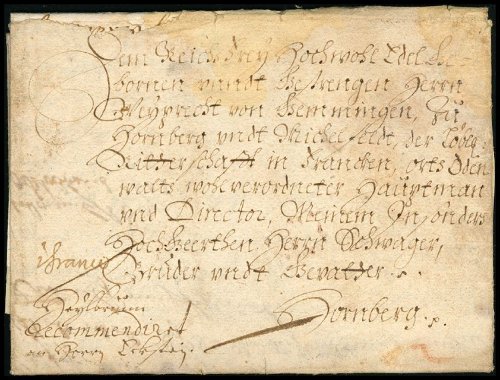 Dem Reich Frey Hochwohl Edel Ge-
bornen vundt Gestrengen Herrn
Weyprecht von Gemmingen, Zu
Hornberg vndt Michelfeldt, der Löbl:
Ritterschafft in Francken, orts Oden
waldts wohl verordneter Hauptman
vnd Director, Meinem Insonders
Hochgeerthen Herrn Schwager,
Bruder vndt Gevatter.
franco
Heylbrum
Recommendiret
an Herrn
Hornberg.